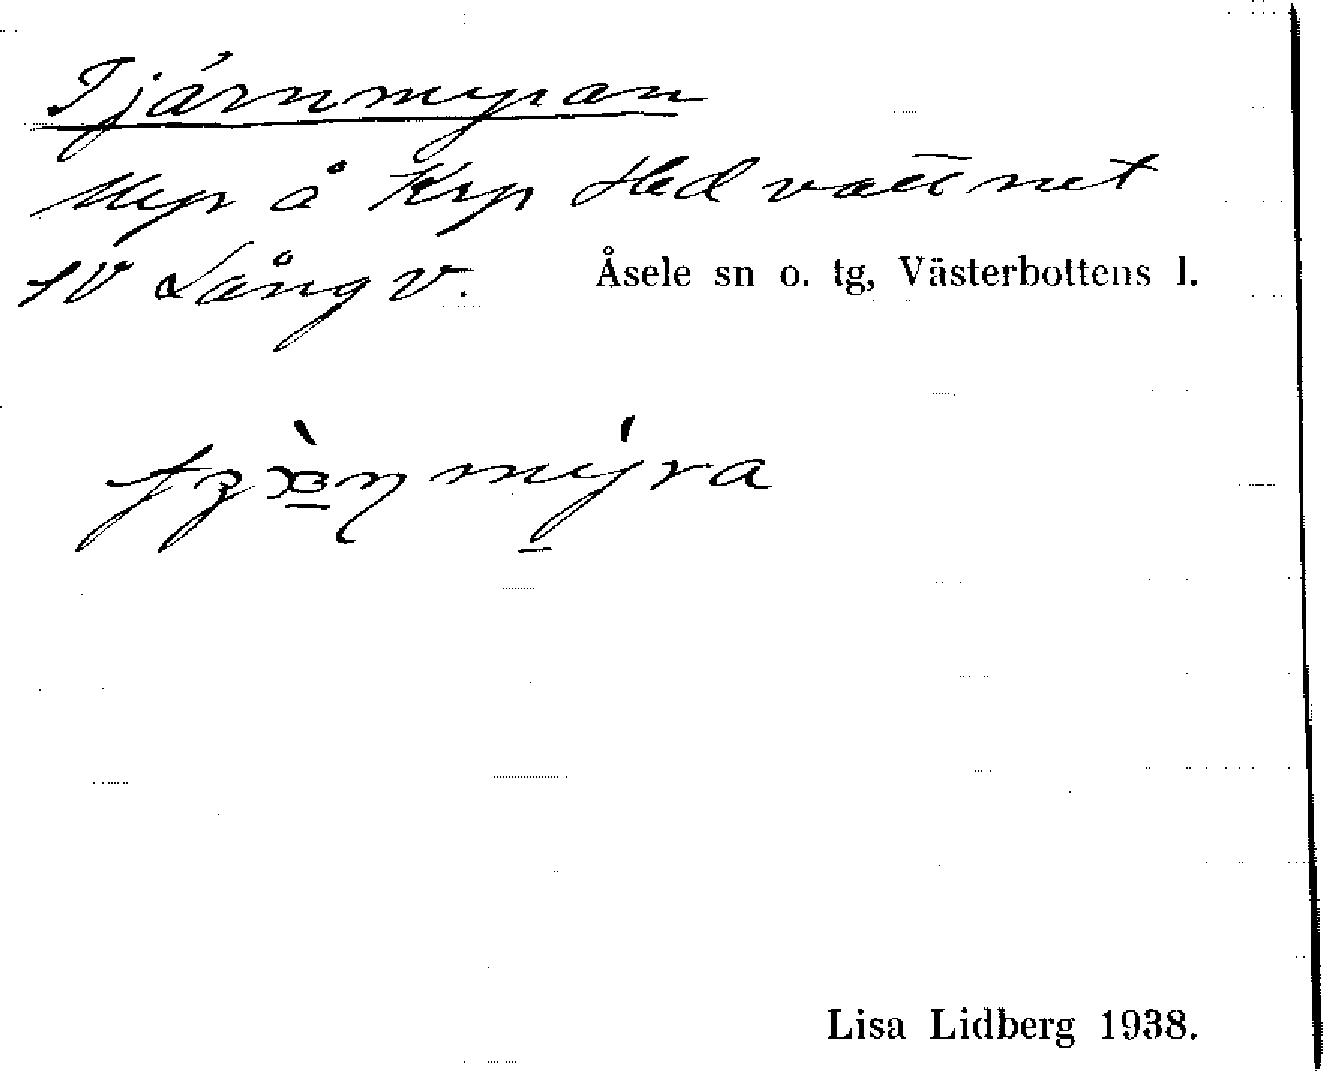 Tjärnmyran
Myr å Krp Hedvattnet
SV Långv. Åsele sn o. tg, Västerbottens l.
Lisa Lidberg 1938.